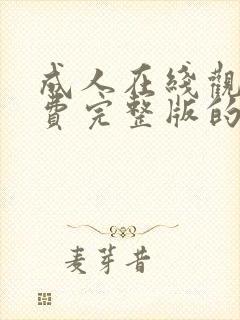 成人在綫觀
費完整版的
麦芽昔